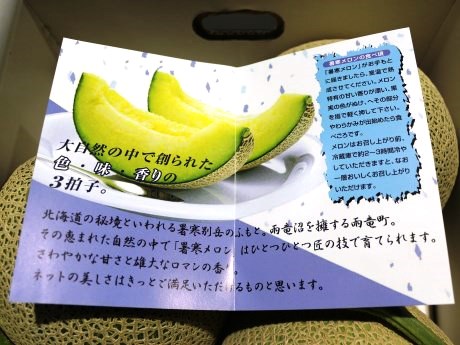 大自然の中で創られた
色・味・香りの
3拍子。
暑寒メロンの食べ頃
「暑寒メロン」がお手もと
に届きましたら、室温で熟
成させてください。メロン
特有の甘い香りが漂い、果
実の色がぬけ、へその部分
を指で軽く押して下さい。
やわらかみが出始めたら食
べごろです。
メロンはお召し上がり前、
冷蔵庫で約2～3時間冷や
していただきますと、なお
一層おいしくお召し上がり
いただけます。
北海道の秘境といわれる暑寒別岳のふもと。雨竜沼を擁する雨竜町。
その恵まれた自然の中で「暑寒メロン」はひとつひとつ匠の技で育てられます。
さわやかな甘さと雄大なロマンの香り。
ネットの美しさはきっとご満足いただけるものと思います。